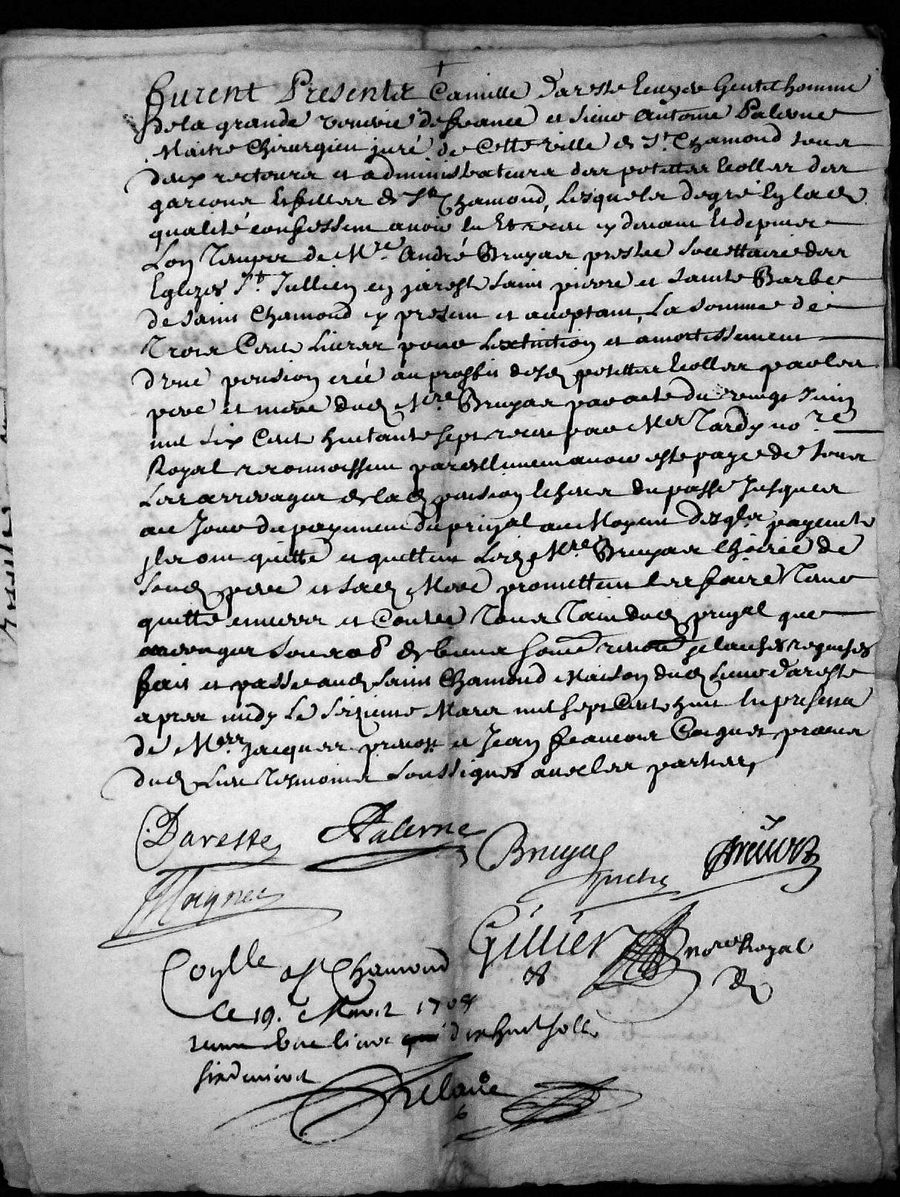 furent Presents Camille Dareste Escuyer Gentilhomme
de la grande vennerie de france et sieur Antoine Palerne
Maitre Chirurgien juré de Cette ville de St Chamond tous
deux recteurs et administrateurs des petittes Ecolles des
garçons et filles de St Chamond, Lesquels de gré en lad
qualité confessent avoir eu et receu cy devant et
de Mre André Bruyas prestre societtaire des
Eglizes St Jullien en jarest saint pierre et sainte Barbe
de saint Chamond cy present et aceptant, La somme de
Trois Cents Livres pour L'extinction et amortissement
d'une pension créé au proffit desd petittes Ecolles par les
pere et mere dud Mre Bruyas par acte du vingt Juin
mil six Cent huitante sept receu par Me Tardy nore
Royal reconnoissent pareillement avoir esté payé de tous
Les arrerages de lad pension du passé Jusques
au Jour du payement du prinpal au Moyen desqls payements
ils ont quitté et quittent Led Mre Bruyas de
sond pere et sad Mere promettent Les faire Tenir
quitte envers et Contre Tous Tant dud prinpal que
arrerages sous
fait et passé aud saint Chamond Maison dud sieur Dareste
apres midy Le seizieme Mars mil sept Cents huit En presence
de Jacques et Jean francois
dud Lieu Tesmoins soussignes avec les parties
Dareste Palerne
Bruyas
ptre
Gillier nore Royal
Collé a St Chamond
Ce 19. Mars 1708
receu livre dix huit sols
six deniers